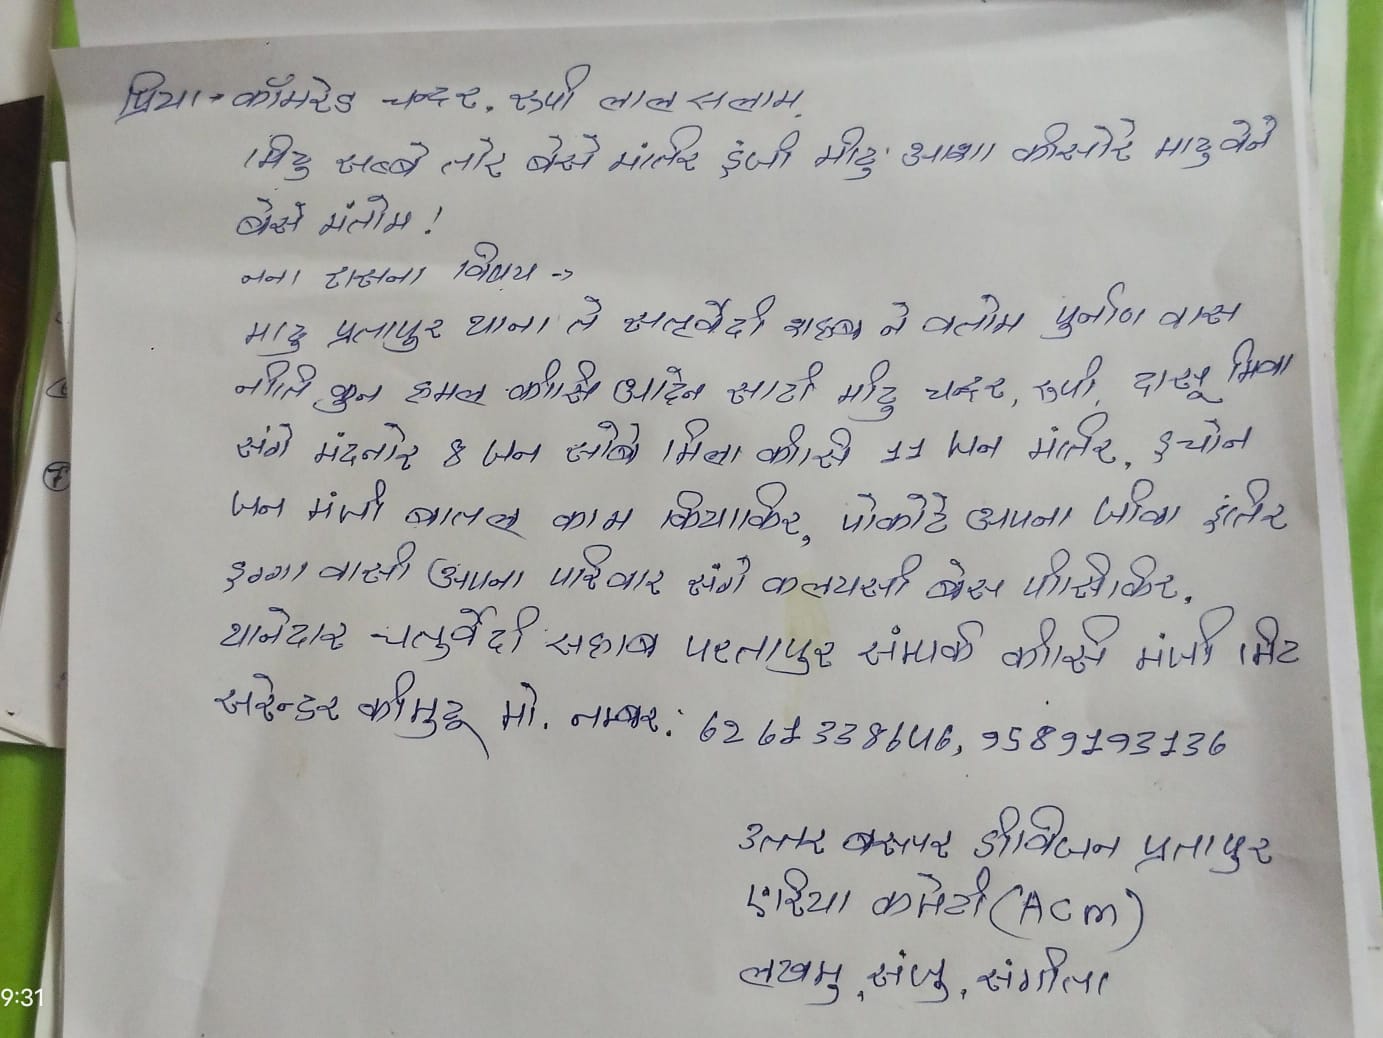 प्रिया → कॉमरेड चन्दर, रूपी लाल सलाम,
मिटु अब्बे तोर बेसे मंतिर इंजी मीटु आशा कीसोरे माटु वेने
बेसे मंतोम!
नना दासना विषय →
माटु प्रतापुर थाना ते चतुर्वेदी साहब ने वतोम पुर्नाण वास
नीति जुन हमल कीसि आदेन साटी मीटु चन्दर, रूपी, दासू मिवा
संगे मंदनोर 8 जन ओबे मिला कीसि 11 जन मंतिर, इचोन
जन मंजी बातल काम कियाकिर, पोकोटे अपना जीवा इंतिर
इग्गा वासी अपना परिवार संगे कलयसी बेस पीसीकिर,
थानेदार चतुर्वेदी साहब परतापुर संम्पर्क कीसि मंजी मिट
सरेन्डर कीमुटू मो. नम्बर: 6261338646, 9589193136
उत्तर बस्तर डीविजन प्रतापुर
एरिया कमेटी (ACM)
लखमु, संजु, संगीता
9:31